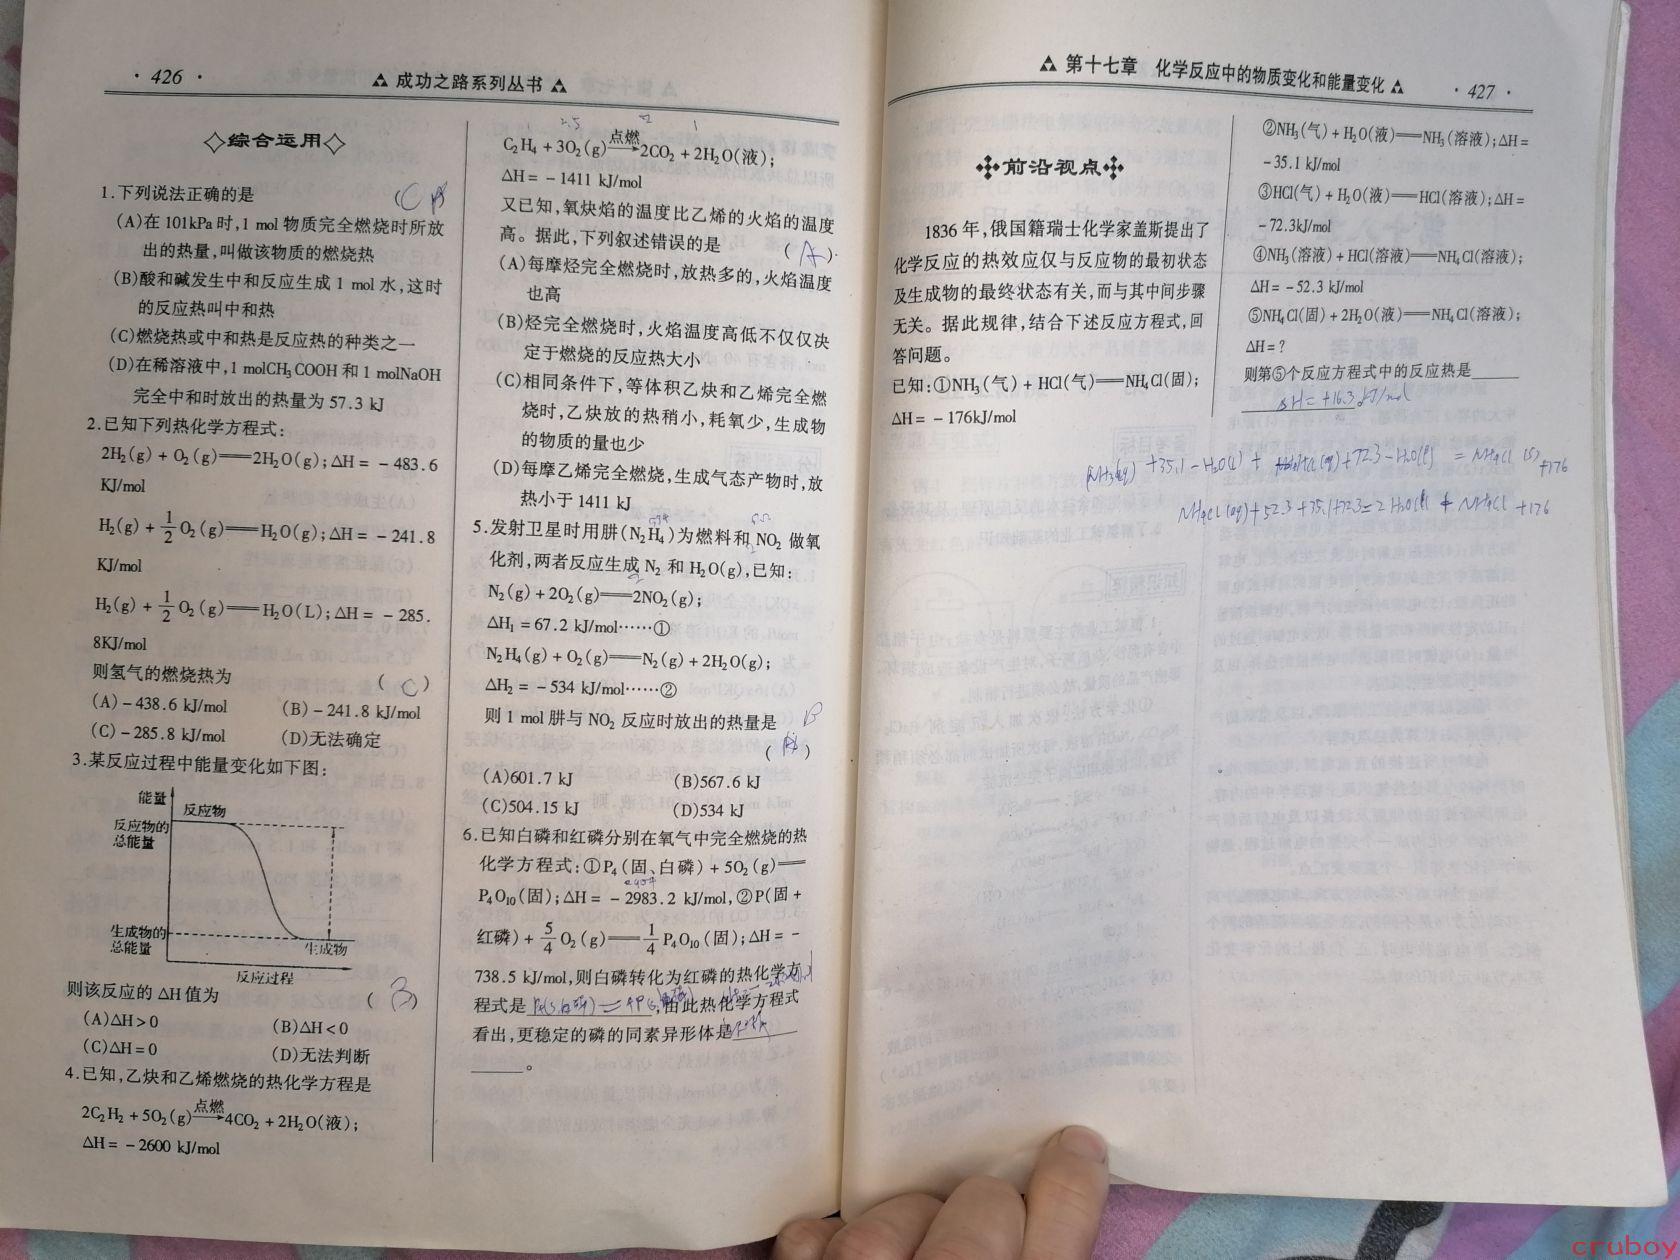 · 426 ·
成功之路系列丛书
◇综合运用◇
1.下列说法正确的是 (C
(A)在 101kPa 时,1 mol 物质完全燃烧时所放
出的热量,叫做该物质的燃烧热
(B)酸和碱发生中和反应生成 1 mol 水,这时
的反应热叫中和热
(C)燃烧热或中和热是反应热的种类之一
(D)在稀溶液中,1 molCH₃COOH 和 1 molNaOH
完全中和时放出的热量为 57.3 kJ
2.已知下列热化学方程式:
2H₂(g) + O₂(g)══2H₂O(g);ΔH = -483.6
KJ/mol
H₂(g) + 1/2 O₂(g)══H₂O(g);ΔH = -241.8
KJ/mol
H₂(g) + 1/2 O₂(g)══H₂O(L);ΔH = -285.
8KJ/mol
则氢气的燃烧热为 ( C )
(A) -438.6 kJ/mol (B) -241.8 kJ/mol
(C) -285.8 kJ/mol (D)无法确定
3.某反应过程中能量变化如下图:
能量
反应物
反应物的
总能量
生成物的
总能量
生成物
反应过程
则该反应的 ΔH 值为 ( B )
(A)ΔH>0 (B)ΔH<0
(C)ΔH=0 (D)无法判断
4.已知,乙炔和乙烯燃烧的热化学方程是
点燃
2C₂H₂ + 5O₂(g)→4CO₂ + 2H₂O(液);
ΔH = -2600 kJ/mol
1 2.5 2 1
点燃
C₂H₄ + 3O₂(g)→2CO₂ + 2H₂O(液);
ΔH = -1411 kJ/mol
又已知,氧炔焰的温度比乙烯的火焰的温度
高。据此,下列叙述错误的是 ( A ).
(A)每摩烃完全燃烧时,放热多的,火焰温度
也高
(B)烃完全燃烧时,火焰温度高低不仅仅决
定于燃烧的反应热大小
(C)相同条件下,等体积乙炔和乙烯完全燃
烧时,乙炔放的热稍小,耗氧少,生成物
的物质的量也少
(D)每摩乙烯完全燃烧,生成气态产物时,放
热小于 1411 kJ
5.发射卫星时用肼(N₂H₄)为燃料和 NO₂ 做氧
化剂,两者反应生成 N₂ 和 H₂O(g),已知:
N₂(g) + 2O₂(g)══2NO₂(g);
ΔH₁ = 67.2 kJ/mol……①
N₂H₄(g) + O₂(g)══N₂(g) + 2H₂O(g);
ΔH₂ = -534 kJ/mol……②
则 1 mol 肼与 NO₂ 反应时放出的热量是 B
( )
(A)601.7 kJ (B)567.6 kJ
(C)504.15 kJ (D)534 kJ
6.已知白磷和红磷分别在氧气中完全燃烧的热
化学方程式:①P₄(固、白磷) + 5O₂(g)══
P₄O₁₀(固);ΔH = -2983.2 kJ/mol,②P(固+
红磷) + 5/4 O₂(g)══1/4 P₄O₁₀(固);ΔH = -
738.5 kJ/mol,则白磷转化为红磷的热化学方
程式是 P₄(s,白磷) = 4P(s,红磷) ,由此热化学方程式
看出,更稳定的磷的同素异形体是 红磷
。
第十七章 化学反应中的物质变化和能量变化
· 427 ·
前沿视点
1836 年,俄国籍瑞士化学家盖斯提出了
化学反应的热效应仅与反应物的最初状态
及生成物的最终状态有关,而与其中间步骤
无关。据此规律,结合下述反应方程式,回
答问题。
已知:①NH₃(气) + HCl(气)══NH₄Cl(固);
ΔH = -176kJ/mol
②NH₃(气) + H₂O(液)══NH₃(溶液);ΔH =
-35.1 kJ/mol
③HCl(气) + H₂O(液)══HCl(溶液);ΔH =
-72.3kJ/mol
④NH₃(溶液) + HCl(溶液)══NH₄Cl(溶液);
ΔH = -52.3 kJ/mol
⑤NH₄Cl(固) + 2H₂O(液)══NH₄Cl(溶液);
ΔH = ?
则第⑤个反应方程式中的反应热是
ΔH = +16.3 kJ/mol
NH₃(aq) +35.1 - H₂O(l) + HCl(aq) + 72.3 - H₂O(l) = NH₄Cl (s) +176
NH₄Cl (aq) + 52.3 + 35.1 + 72.3 = 2 H₂O(l) + NH₄Cl +176
cruboy